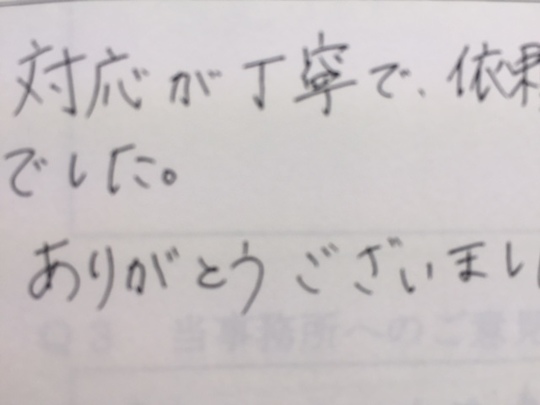 対応が丁寧で、依
でした。
ありがとうございまし
Q3 当事務所へのご意見